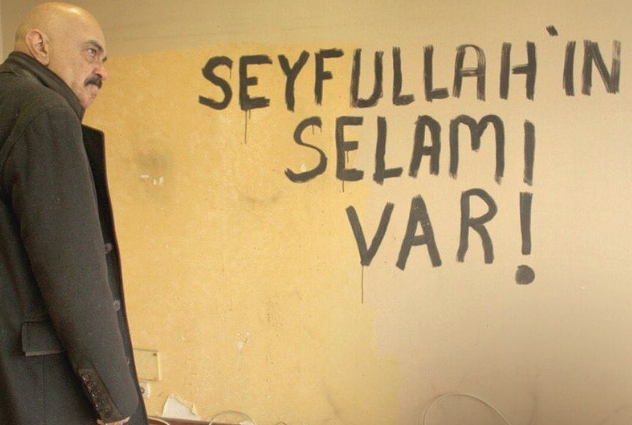 SEYFULLAH'IN
SELAMI
VAR!